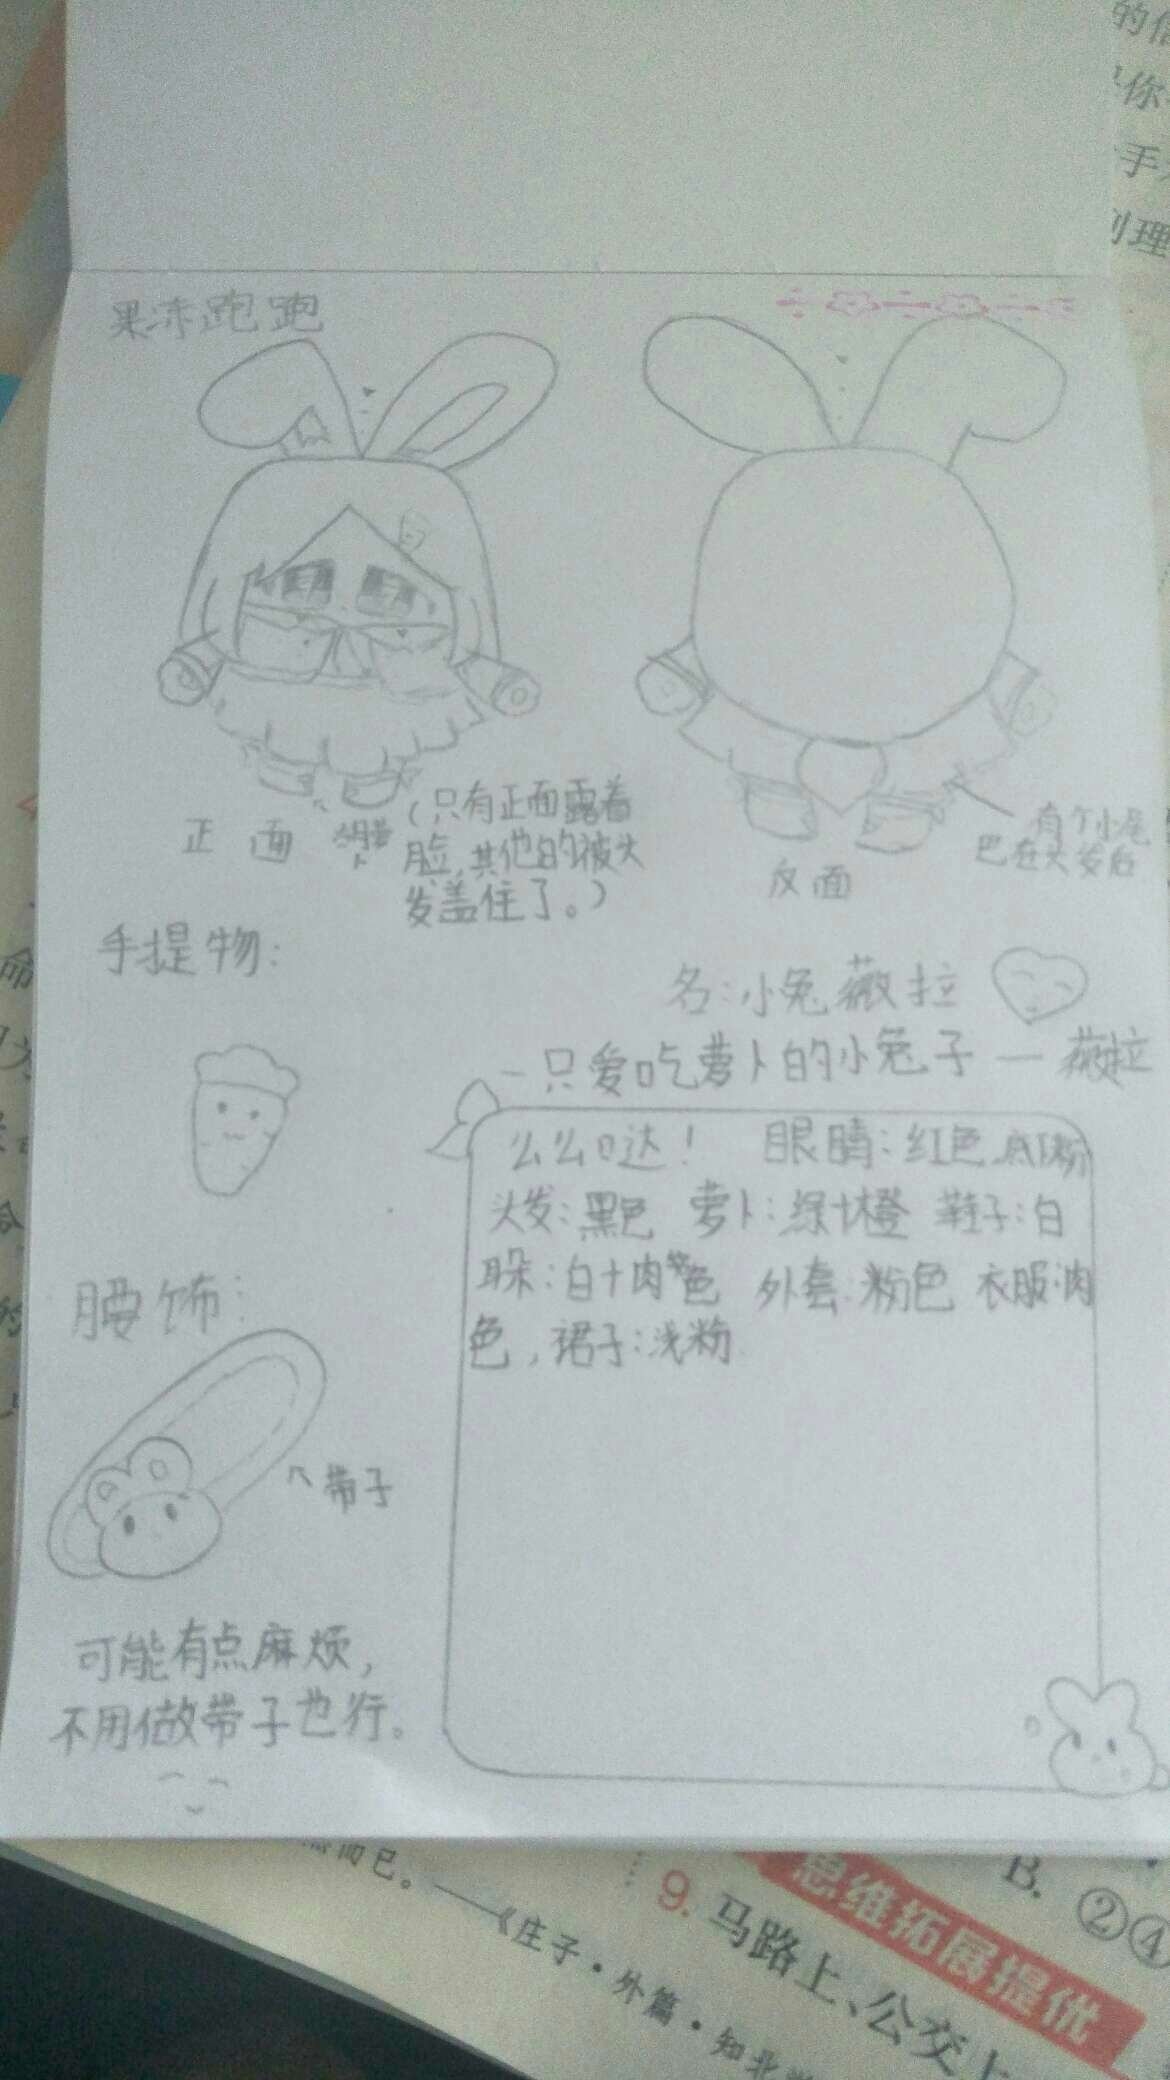 果冻跑跑
正面
(只有正面露着
脸,其他的被头
发盖住了。)
反面
有个小尾
巴在头发后
手提物:
名:小兔薇拉
一只爱吃萝卜的小兔子一薇拉
么么口达! 眼睛:红色
头发:黑色 萝卜:绿+橙 鞋子:白
耳朵:白+肉色 外套:粉色 衣服:肉
色,裙子:浅粉
腰饰:
带子
可能有点麻烦,
不用做带子也行。
的信
你
手
理
命
的
而已。——《庄子·外篇·知北
思维拓展提优
9. 马路上、公交上
B. ②④